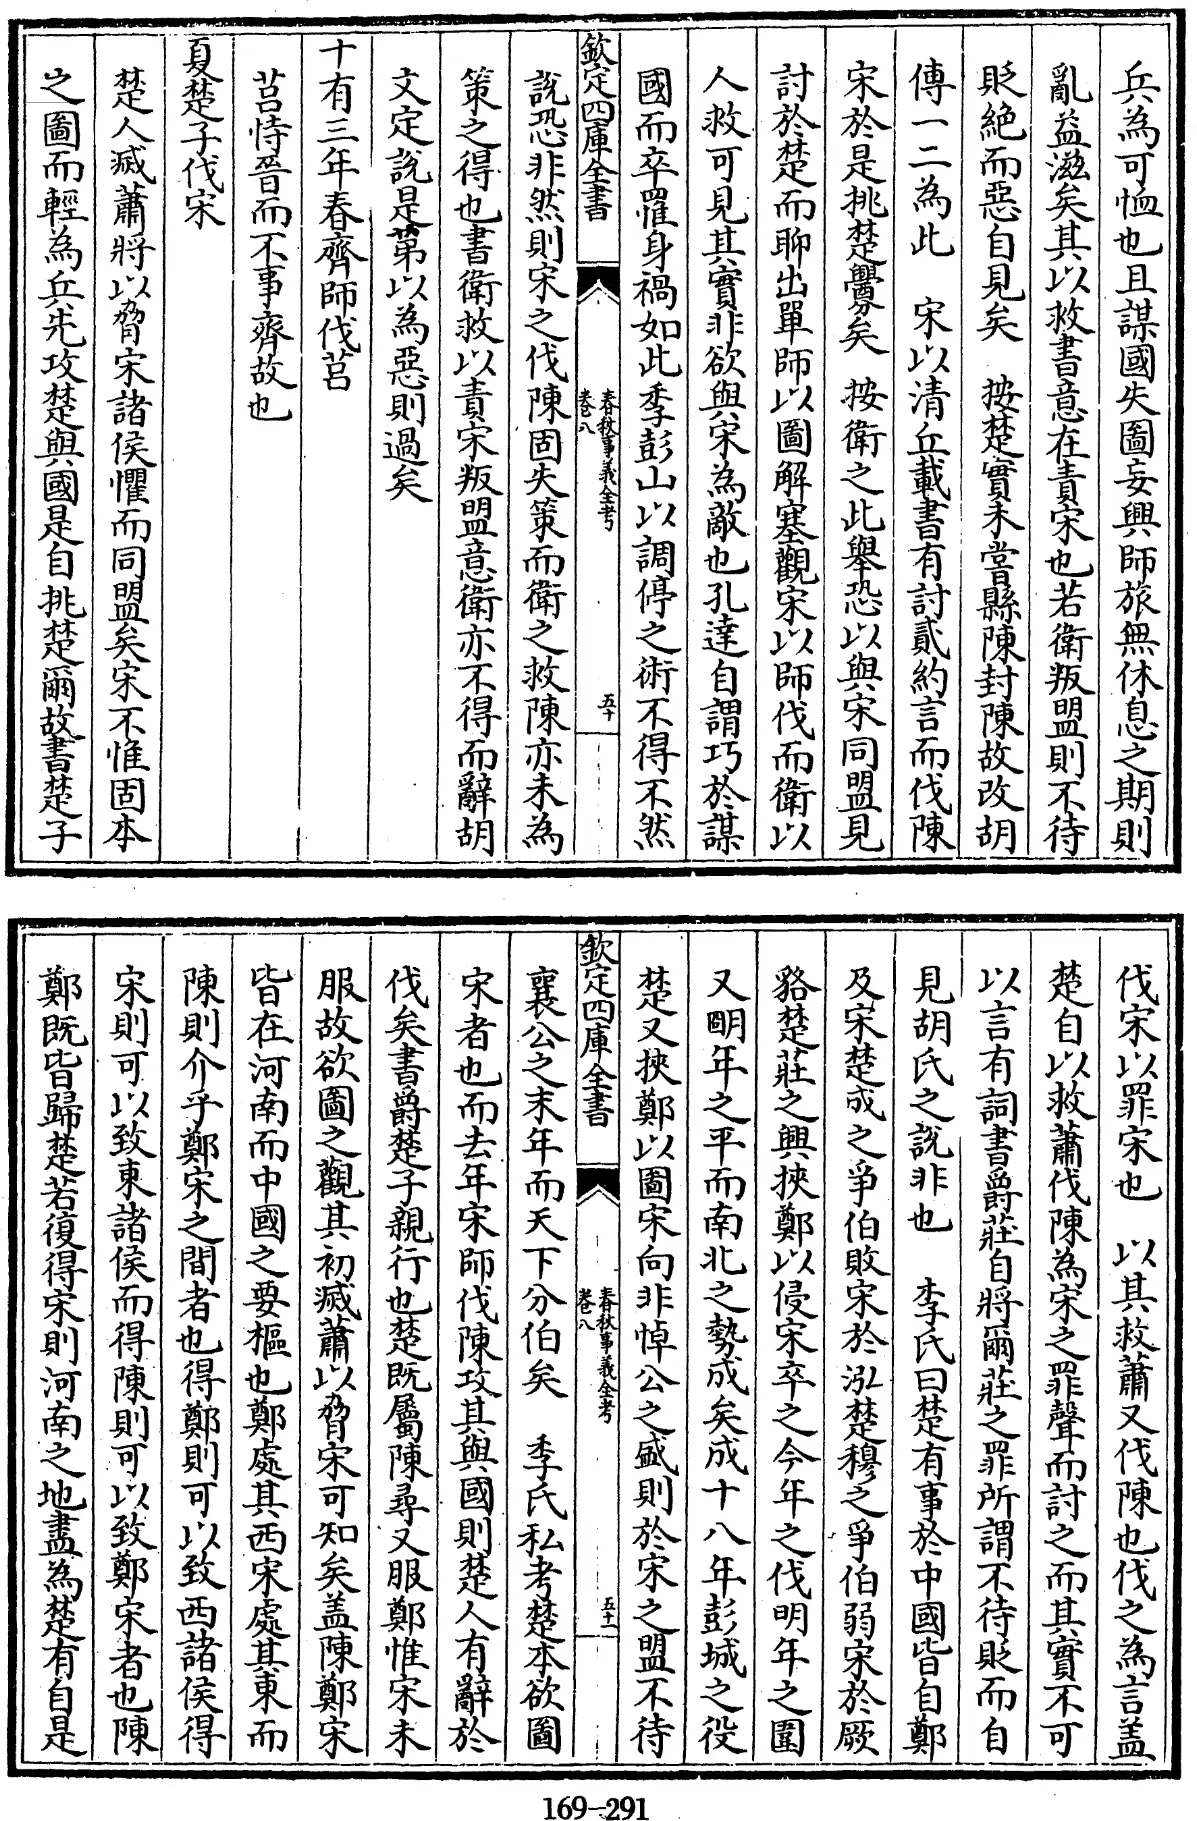 兵為可恤也且謀國失圖妄興師旅無休息之期則
亂益滋矣其以救書意在責宋也若衛叛盟則不待
貶絶而惡自見矣　按楚實未嘗縣陳封陳故改胡
傳一二為此　宋以清丘載書有討貳約言而伐陳
宋於是挑楚釁矣　按衛之此舉恐以與宋同盟見
討於楚而聊出單師以圖解塞觀宋以師伐而衛以
人救可見其實非欲與宋為敵也孔達自謂巧於謀
國而卒罹身禍如此季彭山以調停之術不得不然
欽定四庫全書
春秋事義全考
卷八
五十
說恐非然則宋之伐陳固失策而衛之救陳亦未為
策之得也書衛救以責宋叛盟意衛亦不得而辭胡
文定說是第以為惡則過矣
十有三年春齊師伐莒
莒恃晉而不事齊故也
夏楚子伐宋
楚人滅蕭將以脅宋諸侯懼而同盟矣宋不惟固本
之圖而輕為兵先攻楚與國是自挑楚爾故書楚子
伐宋以罪宋也　以其救蕭又伐陳也伐之為言蓋
楚自以救蕭伐陳為宋之罪聲而討之而其實不可
以言有詞書爵莊自將爾莊之罪所謂不待貶而自
見胡氏之說非也　李氏曰楚有事於中國皆自鄭
及宋楚成之爭伯敗宋於泓楚穆之爭伯弱宋於厥
貉楚莊之興挾鄭以侵宋卒之今年之伐明年之圍
又明年之平而南北之勢成矣成十八年彭城之役
楚又挾鄭以圖宋向非悼公之盛則於宋之盟不待
欽定四庫全書
春秋事義全考
卷八
五十一
襄公之末年而天下分伯矣　季氏私考楚本欲圖
宋者也而去年宋師伐陳攻其與國則楚人有辭於
伐矣書爵楚子親行也楚既屬陳尋又服鄭惟宋未
服故欲圖之觀其初滅蕭以脅宋可知矣蓋陳鄭宋
皆在河南而中國之要樞也鄭處其西宋處其東而
陳則介乎鄭宋之間者也得鄭則可以致西諸侯得
宋則可以致東諸侯而得陳則可以致鄭宋者也陳
鄭既皆歸楚若復得宋則河南之地盡為楚有自是
169-291